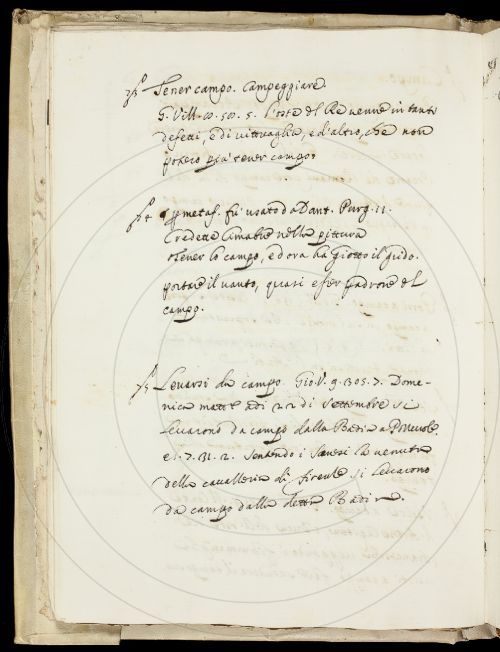 Tener campo. Campeggiare.
G. Vill. 10. 50. 5. L'oste del Re venne in tanti
difetti, e di vittuaglia, e d'altro, che non
potero più tener campo.
metaf. fù usato da Dant. Purg. 11.
Credette Cimabue nella pittura
Tener lo campo, ed ora ha Giotto il grido.
portare il vanto, quasi esser padrone del
campo.
Levarsi da campo. Gio. V. 9. 305. 7. Dome-
nica matt. adi 22 di Settembre si
levarono da campo dalla Badia a
e 7. 31. 2. Sentendo i Sanesi la venuta
della cavalleria di Firenze si levarono
da campo dalla detta Badia.